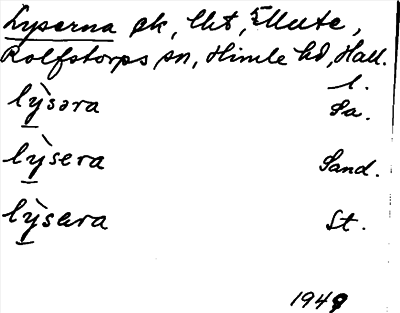 Lyserna sk, Ut, 
Rolfstorps sn, Himle hd, Hall.
l.
lỳsəra Sa.
lỳsera Sand.
lỳsæra St.
1949